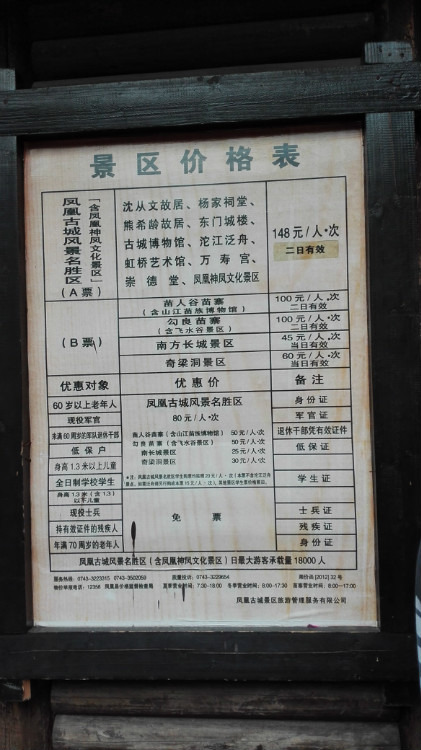 景区价格表
凤凰古城风景名胜区
（含凤凰神凤文化景区）
（A 票）
沈从文故居、杨家祠堂、
熊希龄故居、东门城楼、
古城博物馆、沱江泛舟、
虹桥艺术馆、万寿宫、
崇德堂、凤凰神凤文化景区
148 元 / 人·次
二日有效
（B 票）
苗人谷苗寨
（含山江苗族博物馆）
100 元 / 人·次
二日有效
勾良苗寨
（含飞水谷景区）
100 元 / 人·次
二日有效
南方长城景区
45 元 / 人·次
当日有效
奇梁洞景区
60 元 / 人·次
当日有效
优惠对象
优惠价
备注
60 岁以上老年人
现役军官
未满 60 周岁的军队退休干部
低保户
身高 1.3 米以上儿童
全日制学校学生
凤凰古城风景名胜区
80 元 / 人·次
苗人谷苗寨（含山江苗族博物馆） 50 元 / 人·次
勾良苗寨（含飞水谷景区） 50 元 / 人·次
南长城景区 25 元 / 人·次
奇梁洞景区 30 元 / 人·次
身份证
军官证
退休干部凭有效证件
低保证
学生证
身高 1.3 米（含 1.3）
以下儿童
现役士兵
持有效证件的残疾人
年满 70 周岁的老年人
免票
士兵证
残疾证
身份证
凤凰古城风景名胜区（含凤凰神凤文化景区）日最大游客承载量 18000 人
服务热线：0743-3223315 0743-3502059 质量投诉：0743-3229664 湘价函 [2012] 32 号
物价举报电话：12358 凤凰县价格监督检查局 夏季营业时间：7:30-18:00 冬季营业时间：8:00-17:30
凤凰古城景区旅游管理服务有限公司